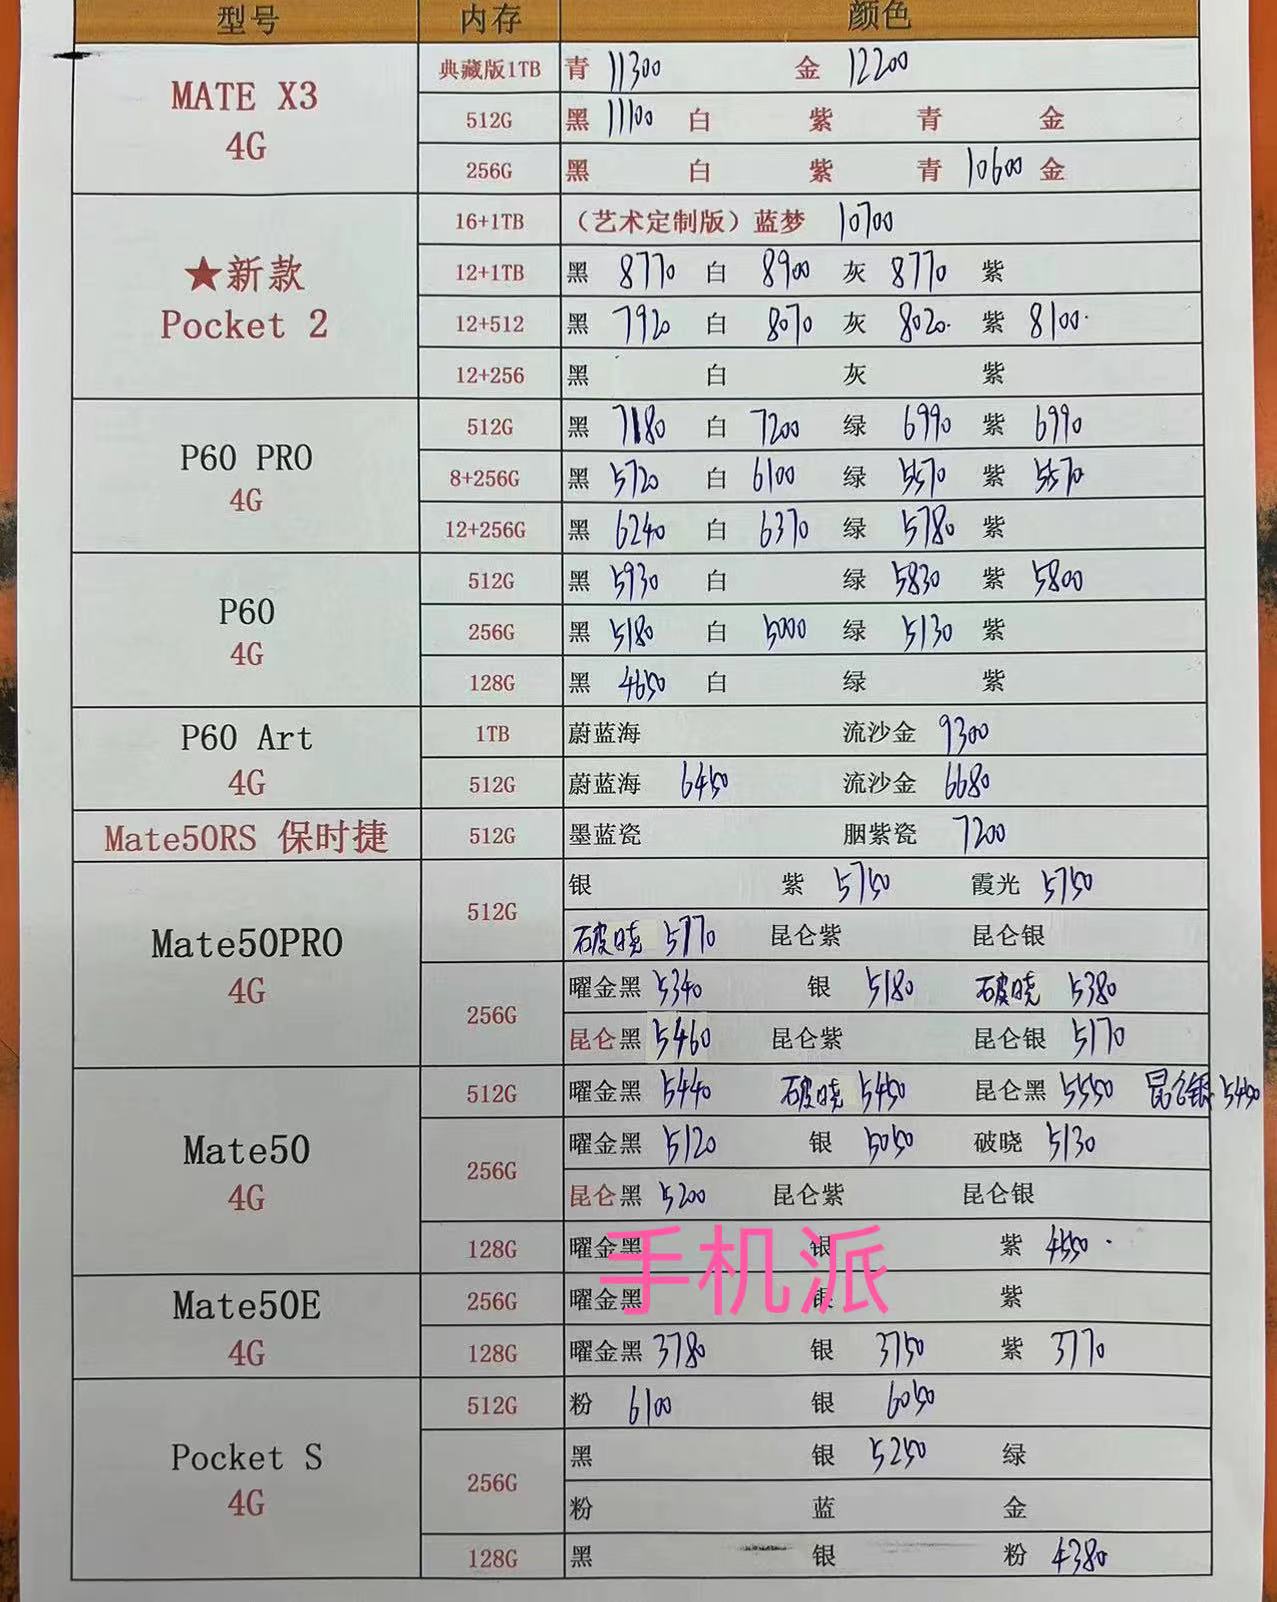 型号 内存 颜色
MATE X3 4G 典藏版1TB 青 11300 金 12200
512G 黑 11100 白 紫 青 金
256G 黑 白 紫 青 10600 金
★新款 Pocket 2 16+1TB （艺术定制版）蓝梦 10700
12+1TB 黑 8770 白 8900 灰 8770 紫
12+512 黑 7920 白 8070 灰 8020 紫 8100
12+256 黑 白 灰 紫
P60 PRO 4G 512G 黑 7180 白 7200 绿 6990 紫 6990
8+256G 黑 5720 白 6100 绿 5570 紫 5570
12+256G 黑 6240 白 6370 绿 5780 紫
P60 4G 512G 黑 5930 白 绿 5830 紫 5800
256G 黑 5180 白 5000 绿 5130 紫
128G 黑 4650 白 绿 紫
P60 Art 4G 1TB 蔚蓝海 流沙金 9300
512G 蔚蓝海 6450 流沙金 6680
Mate50RS 保时捷 512G 墨蓝瓷 胭紫瓷 7200
Mate50PRO 4G 512G 银 紫 5750 霞光 5750
破晓 5770 昆仑紫 昆仑银
256G 曜金黑 5340 银 5180 破晓 5380
昆仑黑 5460 昆仑紫 昆仑银 5170
Mate50 4G 512G 曜金黑 5440 破晓 5450 昆仑黑 5550 昆仑银 5450
256G 曜金黑 5120 银 5050 破晓 5130
昆仑黑 5200 昆仑紫 昆仑银
128G 曜金黑 银 紫 4550
手机派
Mate50E 4G 256G 曜金黑 银 紫
128G 曜金黑 3780 银 3750 紫 3770
Pocket S 4G 512G 粉 6100 银 6050
256G 黑 银 5250 绿
粉 蓝 金
128G 黑 银 粉 4380